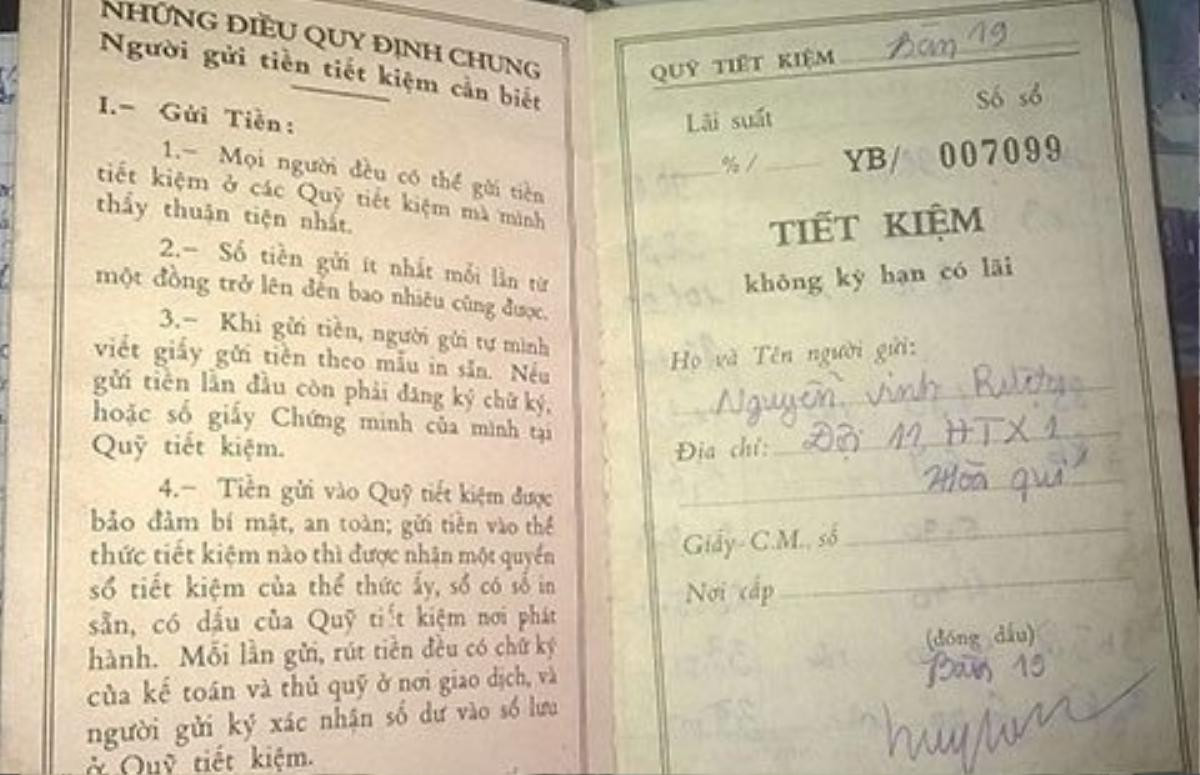 NHỮNG ĐIỀU QUY ĐỊNH CHUNG
Người gửi tiền tiết kiệm cần biết
I.— Gửi Tiền:
1.— Mọi người đều có thể gửi tiền
tiết kiệm ở các Quỹ tiết kiệm mà mình
thấy thuận tiện nhất.
2.— Số tiền gửi ít nhất mỗi lần từ
một đồng trở lên đến bao nhiêu cũng được.
3.— Khi gửi tiền, người gửi tự mình
viết giấy gửi tiền theo mẫu in sẵn. Nếu
gửi tiền lần đầu còn phải đăng ký chữ ký,
hoặc số giấy Chứng minh của mình tại
Quỹ tiết kiệm.
4.— Tiền gửi vào Quỹ tiết kiệm được
bảo đảm bí mật, an toàn; gửi tiền vào thể
thức tiết kiệm nào thì được nhận một quyển
sổ tiết kiệm của thể thức ấy, sổ có số in
sẵn, có dấu của Quỹ tiết kiệm nơi phát
hành. Mỗi lần gửi, rút tiền đều có chữ ký
của kế toán và thủ quỹ ở nơi giao dịch, và
người gửi ký xác nhận số dư vào sổ lưu
ở Quỹ tiết kiệm.
QUỸ TIẾT KIỆM Bàn 19
Lãi suất
Số sổ
% /
YB/ 007099
TIẾT KIỆM
không kỳ hạn có lãi
Họ và Tên người gửi:
Nguyễn Vinh
Địa chỉ: Đội 11, HTX 1
Hòa quí
Giấy C.M. số
Nơi cấp
(đóng dấu)
Bàn 19